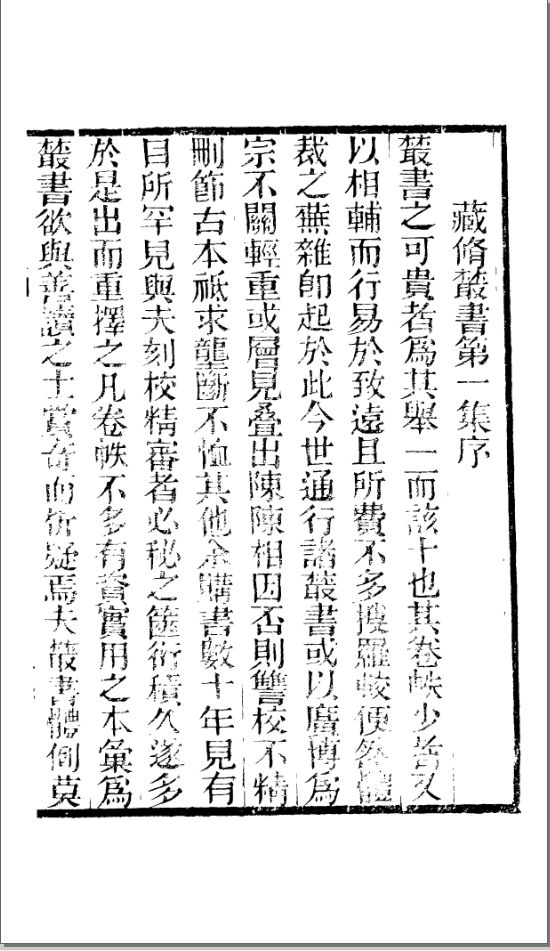 藏脩叢書第一集序
叢書之可貴者爲其舉一而該十也其卷帙少者又
以相輔而行易於致遠且所費不多搜羅較便然體
裁之蕪雜卽起於此今世通行諸叢書或以廣博爲
宗不關輕重或層見疊出陳陳相因否則讐校不精
刪節古本祗求壟斷不恤其他余購書數十年見有
目所罕見與夫刻校精審者必秘之篋衍積久遂多
於是出而重擇之凡卷帙不多有資實用之本彙爲
叢書欲與善讀之士賞奇而析疑焉夫叢書體例莫